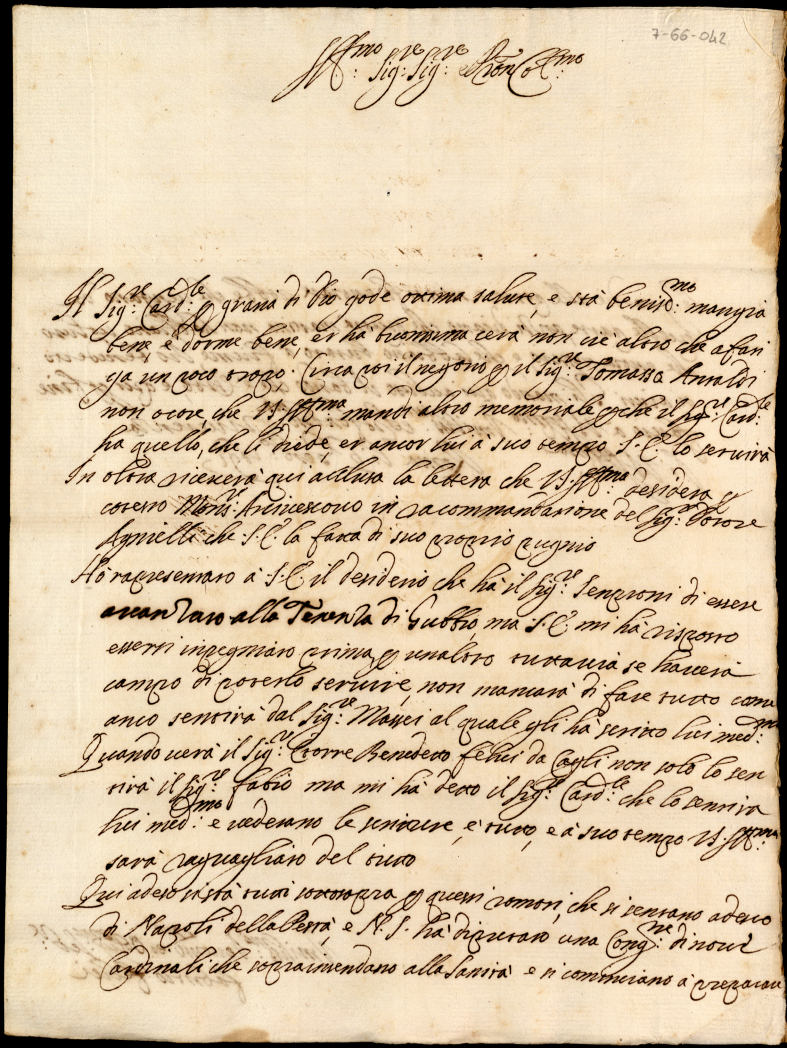 7-66-042
Ill:mo Sig:re Sig:re e Pron Col:mo
Il Sig:re Card:le p gratia di Dio gode ottima salute, e stà beniss:mo mangia
bene, e dorme bene, et hà buonissima cera non vi è altro che afati
ga un poco tropo. Circa poi il negotio p il Sig:re Tomasso Ansaldi
non ocore, che VS Ill:ma mandi altro memoriale p che il Sig:re Card:le
ha quello, che li diede, et ancor lui à suo tempo S.E. lo servirà
In oltra riceverà qui acclusa la lettera che VS Ill:ma desidera p
cotesto Mons:re Arcivescovo in racommandatione del Sig:re Dotore
Agnielli che S.E. la fatta di suo proprio pugnio
Hò rapresentato à S.E. il desiderio che hà il Sig:re Semproni di essere
avanzato alla Tenenza di Gubbio, ma S.E. mi hà risposto
essersi impegniato prima p unaltro tuttavia se haverà
campo di poterlo servire, non mancarà di fare tutto come
anco sentirà dal Sig:re Massei al quale gli hà scritto lui med:mo
Quando verà il Sig:r Dottore Benedetto felici da Cagli non solo lo sen
tirà il Sig:re fabio ma mi hà detto il Sig:re Card:le che lo sentira
lui med:mo e vederano le scriture, e tutto, e à suo tempo VS Ill:ma
sarà raguagliato del tutto
Qui adesso si stà tutti sottosopra p questi romori, che si sentano adesso
di Napoli della Peste, e N.S. hà diputato una Cong:ne di nove
Cardinali che sopraintendano alla Sanità e si cominciano à preparare